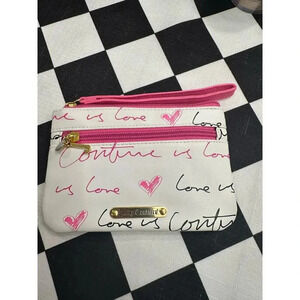 is Love Love
Couture is
Love is Love
Juicy Couture
Love is Couture